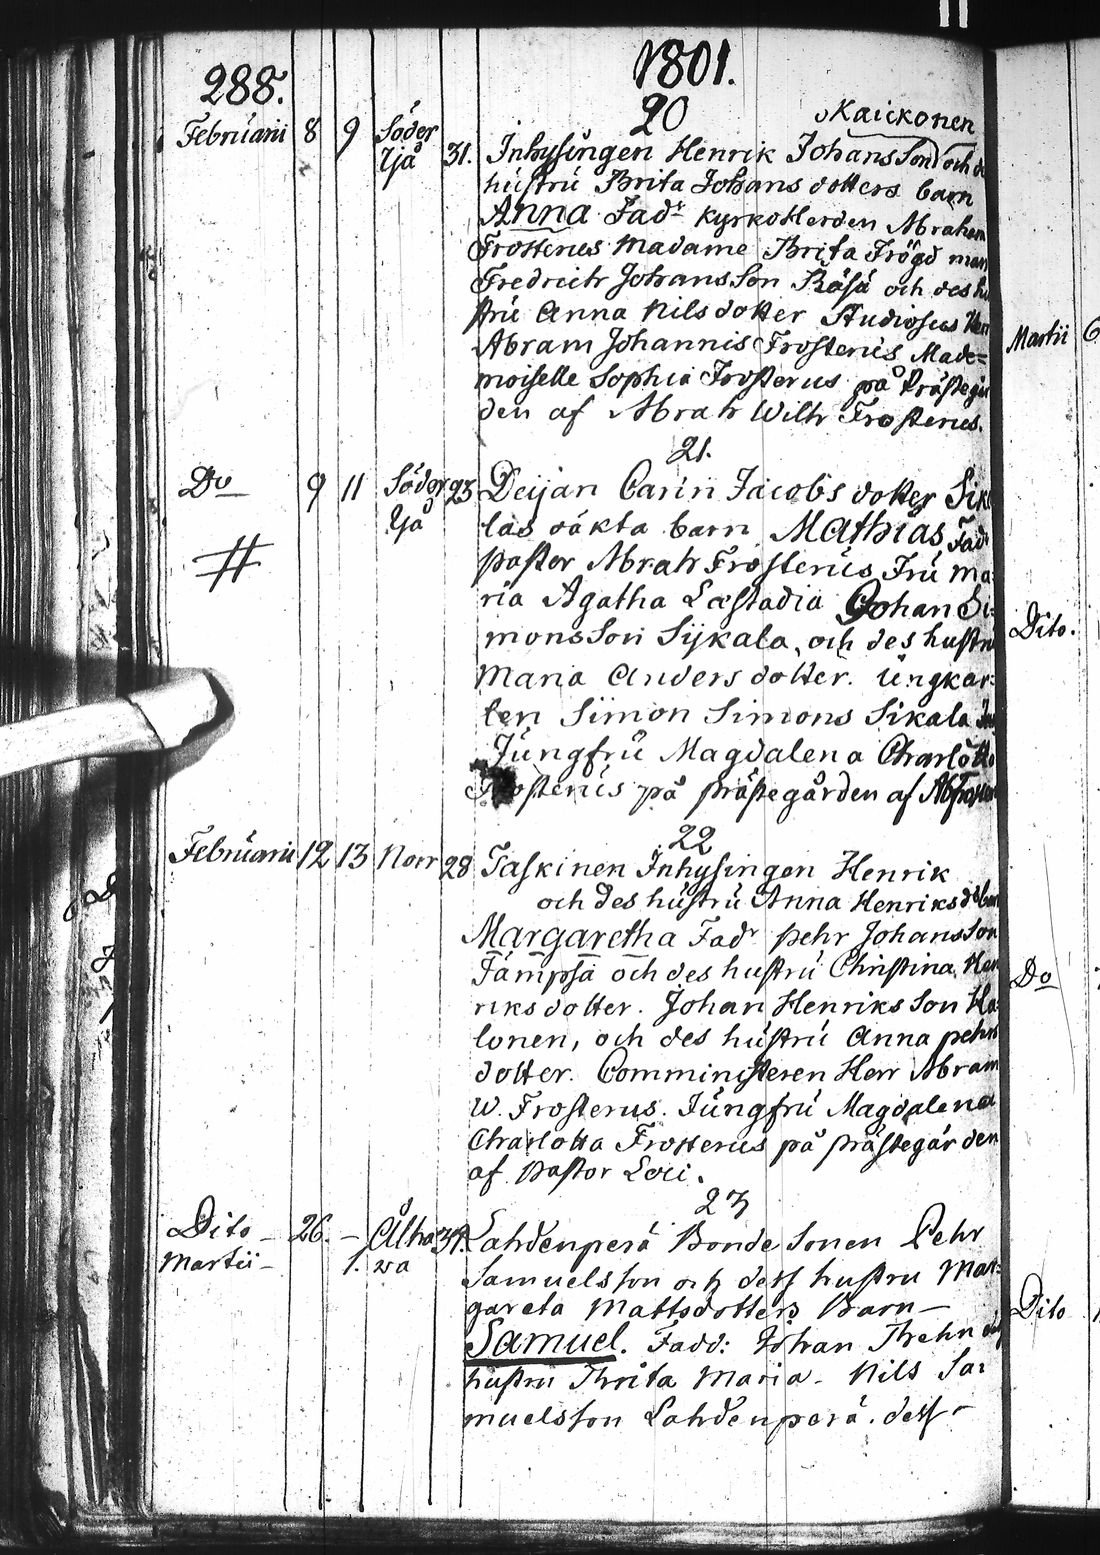 1801.
288.
20
Kaickonen
Februarii 8 9 Söder Yjå 31. Inhysingen Henrik Johansson och de
hustru Brita Johansdotters barn
Anna Fadr Kyrkoherden Abraham
Frosterus Madame Brita Frögd man
Fredrich Johansson Räsä och des hu
stru Anna Nilsdotter Studiosus Herr
Abram Johannis Frosterus Made=
moiselle Sophia Frosterus på Prästegår
den af Abrah Wilh Frosterus.
21.
Do 9 11 Söder Yjå 23 Deijan Carin Jacobsdotter Sika
las oäkta barn Mathias Fadr
pastor Abrah Frosterus Fru Ma=
ria Agatha Læstadia Johan Si=
monsson Sijkala, och des hustru
Maria Andersdotter. Ungkar=
len Simon Simons Sikala
Jungfru Magdalena Charlotta
Frosterus på prästegården af
22
Februarii 12 13 Norr 28 Taskinen Inhysingen Henrik
och des hustru Anna Henriksd barn
Margaretha Fadr pehr Johansson
Tämpsä och des hustru Christina Hen
riksdotter. Johan Henriksson Ha=
lonen, och des hustru Anna pehrs
dotter. Comministeren Herr Abram
W. Frosterus. Jungfru Magdalena
Charlotta Frosterus på prästegården
af Pastor Loci.
23
Dito 26. – Ålha 37. Lahdenperä Bonde Sonen Pehr
Martii – 1. wa Samuelsson och dess hustru Mar=
gareta Mattsdotters Barn –
Samuel. Fadd: Johan Threhn
hustru Brita Maria – Nils Sa=
muelsson Lahdenperä. dess –
Martii 6
Dito.
Do
Dito